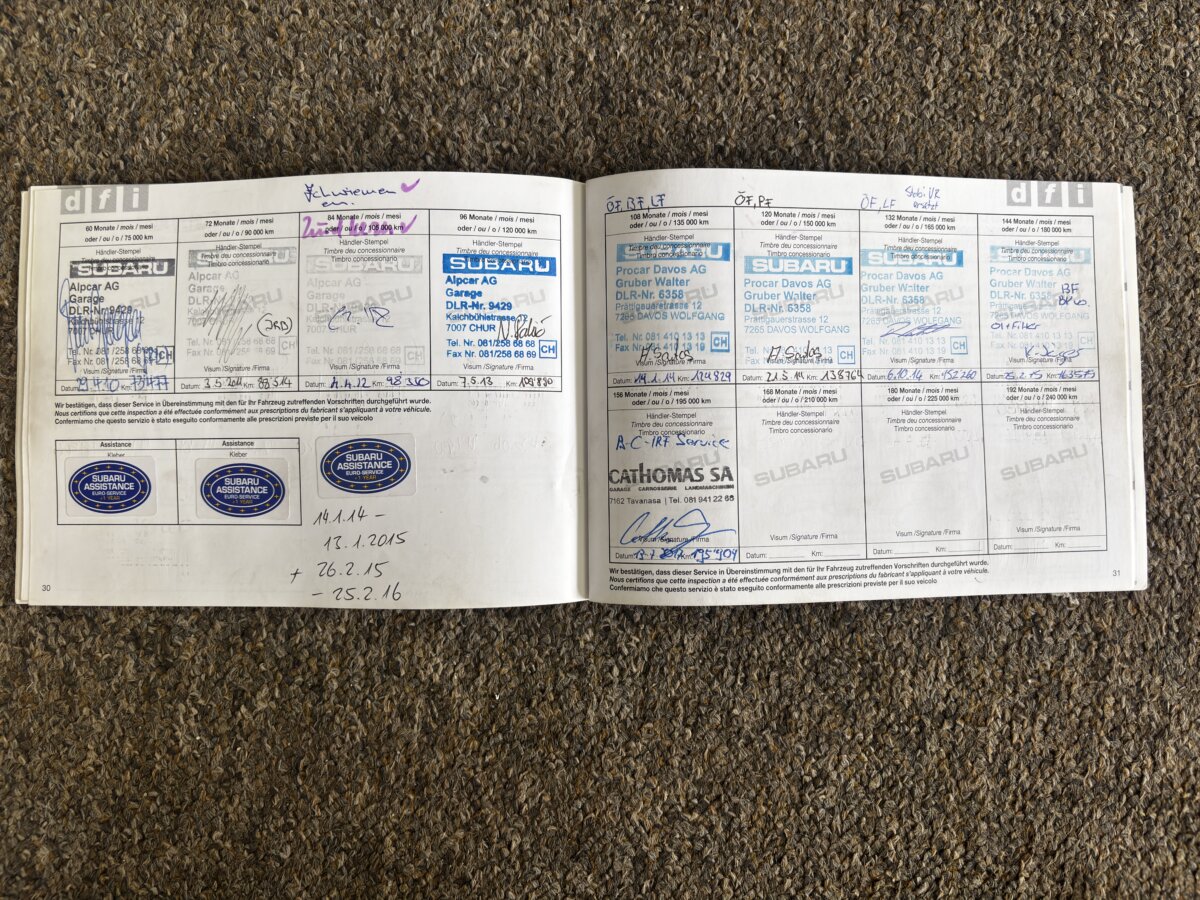 dfi
Schwiemen ✓
60 Monate / mois / mesi
oder / ou / o 75 000 km
Händler-Stempel
Timbre des concessionnaire
Timbro concessionario
SUBARU
Alpcar AG
Garage
DLR-Nr. 9429
Kaichbühlstrasse 12
7007 CHUR
Tel. Nr. 081/258 68 68
Fax Nr. 081/258 68 69
CH
Visum /Signature /Firma
Datum: Km: 73477
72 Monate / mois / mesi
oder / ou / o 90 000 km
Händler-Stempel
Timbre deu concessionnaire
Timbro concessionario
SUBARU
Alpcar AG
Garage
(JRD)
CH
Visum /Signature /Firma
Datum: 3.5.2011 Km:
84 Monate / mois / mesi
oder / ou / o 105 000 km
Händler-Stempel
Timbre deu concessionnaire
Timbro concessionario
SUBARU
Alpcar AG
Garage
7007 CHUR
CH
Visum /Signature /Firma
Datum: 4.4.12 Km: 98 350
96 Monate / mois / mesi
oder / ou / o 120 000 km
Händler-Stempel
Timbre deu concessionnaire
Timbro concessionario
SUBARU
Alpcar AG
Garage
DLR-Nr. 9429
Kaichbühlstrasse 12
7007 CHUR
Tel. Nr. 081/258 68 68
Fax Nr. 081/258 68 69
CH
Visum /Signature /Firma
Datum: 7.5.13 Km:
Wir bestätigen, dass dieser Service in Übereinstimmung mit den für Ihr Fahrzeug zutreffenden Vorschriften durchgeführt wurde.
Nous certifions que cette inspection a été effectuée conformément aux prescriptions du fabricant s'appliquant à votre véhicule.
Confermiamo che questo servizio è stato eseguito conformamente alle prescrizioni previste per il suo veicolo
Assistance
Kleber
SUBARU
ASSISTANCE
EURO-SERVICE
+1 YEAR
Assistance
Kleber
SUBARU
ASSISTANCE
EURO-SERVICE
+1 YEAR
SUBARU
ASSISTANCE
EURO-SERVICE
+1 YEAR
14.1.14 –
13.1.2015
+ 26.2.15
– 25.2.16
30
dfi
ÖF, BF, LF
108 Monate / mois / mesi
oder / ou / o 135 000 km
Händler-Stempel
Timbre deu concessionnaire
Timbro concessionario
SUBARU
Procar Davos AG
Gruber Walter
DLR-Nr. 6358
Prättigauerstrasse 12
7265 DAVOS WOLFGANG
Tel. Nr. 081 410 13 13
Fax Nr. 081 410 13 16
CH
Visum /Signature /Firma
Datum: 14.1.14 Km: 124829
ÖF, PF
120 Monate / mois / mesi
oder / ou / o 150 000 km
Händler-Stempel
Timbre deu concessionnaire
Timbro concessionario
SUBARU
Procar Davos AG
Gruber Walter
DLR-Nr. 6358
Prättigauerstrasse 12
7265 DAVOS WOLFGANG
Tel. Nr. 081 410 13 13
CH
Visum /Signature /Firma
Datum: 21.5.14 Km: 138764
ÖF, LF
Stabi VR
ersetzt
132 Monate / mois / mesi
oder / ou / o 165 000 km
Händler-Stempel
Timbre deu concessionnaire
Timbro concessionario
SUBARU
Procar Davos AG
Gruber Walter
DLR-Nr. 6358
Prättigauerstrasse 12
7265 DAVOS WOLFGANG
CH
Visum /Signature /Firma
Datum: 6.10.14 Km: 152260
144 Monate / mois / mesi
oder / ou / o 180 000 km
Händler-Stempel
Timbre deu concessionnaire
Timbro concessionario
SUBARU
Procar Davos AG
Gruber Walter
DLR-Nr. 6358
BF
Prättigauerstrasse 12
7265 DAVOS WOLFGANG
Öl+Filter
Visum /Signature /Firma
Datum: 25.2.15 Km: 163575
156 Monate / mois / mesi
oder / ou / o 195 000 km
Händler-Stempel
Timbre deu concessionnaire
Timbro concessionario
Service
CATHOMAS SA
GARAGE CARROSSERIE LANDMASCHINEN
7162 Tavanasa | Tel. 081 941 22 66
Visum /Signature /Firma
Datum: Km: 195'404
168 Monate / mois / mesi
oder / ou / o 210 000 km
Händler-Stempel
Timbre deu concessionnaire
Timbro concessionario
SUBARU
Visum /Signature /Firma
Datum: Km:
180 Monate / mois / mesi
oder / ou / o 225 000 km
Händler-Stempel
Timbre deu concessionnaire
Timbro concessionario
SUBARU
Visum /Signature /Firma
Datum: Km:
192 Monate / mois / mesi
oder / ou / o 240 000 km
Händler-Stempel
Timbre deu concessionnaire
Timbro concessionario
SUBARU
Visum /Signature /Firma
Datum: Km:
Wir bestätigen, dass dieser Service in Übereinstimmung mit den für Ihr Fahrzeug zutreffenden Vorschriften durchgeführt wurde.
Nous certifions que cette inspection a été effectuée conformément aux prescriptions du fabricant s'appliquant à votre véhicule.
Confermiamo che questo servizio è stato eseguito conformamente alle prescrizioni previste per il suo veicolo
31